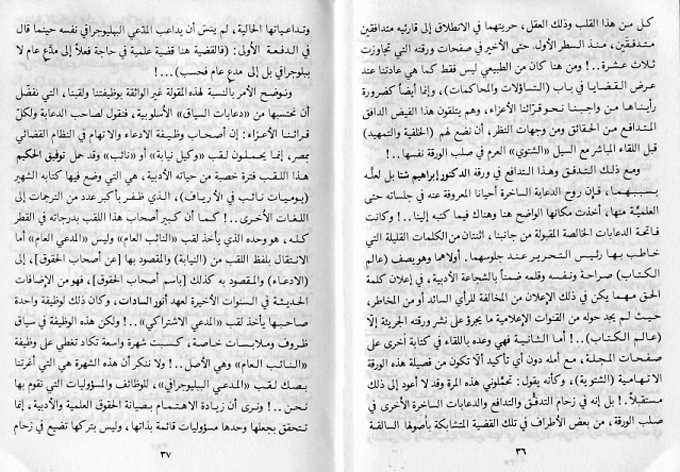 كل من هذا القلب وذلك العقل، حريتهما في الانطلاق إلى قارئيه متدافقين
متدفقين، منذ السطر الأول. حتى الأخير في صفحات ورقته التي تجاوزت
ثلاث عشرة..! ومن هنا كان من الطبيعي ليس فقط كما هي عادتنا عند
عرض القضايا في باب (التساؤلات والمحاكمات)، وإنما أيضاً كضرورة
رأيناها من واجبنا نحو قرّائنا الأعزاء، وهم يتلقون هذا الفيض الدافق
المتدافع من الحقائق ومن وجهات النظر، أن نضع لهم (الخلفية والتمهيد)
قبل اللقاء المباشر مع السيل «الشتوي» العرم في صلب الورقة نفسها..!
ومع ذلك التدفق وهذا التدافع في ورقة الدكتور إبراهيم شتا بل لعلّه
بسببهما، فإن روح الدعابة الساخرة أحيانا المعروفة عنه في جلساته حتى
العلميّة منها، أخذت مكانها الواضح هنا وهناك فيما كتبه إلينا..! وكانت
فاتحة الدعابات الخالصة المقبولة من جانبنا، اثنتان من الكلمات القليلة التي
خاطب بها رئيس التحرير عند جلوسهما. أولاهما وهو يصف (عالم
الكتاب) صراحة ونفسه وقلمه ضمناً بالشجاعة الأدبية، في إعلان كلمة
الحق مهما يكن في ذلك الإعلان من المخالفة للرأي السائد أو من المخاطر،
حيث لم يجد حوله من القنوات الإعلامية ما يجرؤ على نشر ورقته الجريئة إلّا
(عالم الكتاب)..! أما الثانية فهي وعده باللقاء في كتابة أخرى على
صفحات المجلة، مع أمله دون أي تأكيد ألّا تكون من فصيلة هذه الورقة
الاتهامية (الشتوية)، وكأنه يقول: تحمّلوني هذه المرة وقد لا أعود إلى ذلك
مستقبلاً..! بل إنه في زحام التدفّق والتدافع والدعابات الساخرة الأخرى في
صلب الورقة، من بعض الأطراف في تلك القضية المتشابكة بأصولها السالفة
٣٦
وتداعياتها الحالية، لم ينس أن يداعب المدّعي الببليوجرافي نفسه حينما قال
في الدفعة الأولى: (فالقضية هنا قضية علمية في حاجة فعلاً إلى مدّع عام لا
ببلوجرافي بل إلى مدع عام فحسب)...!
ونوضح الأمر بالنسبة لهذه المقولة غير الواثقة بوظيفتنا ولقبنا، التي نفضّل
أن نحتسبها من «دعابات السياق» الأسلوبية، فنقول لصاحب الدعابة ولكلّ
قرائنا الأعزاء: إن أصحاب وظيفة الادعاء والاتهام في النظام القضائي
بمصر، إنما يحملون لقب «وكيل نيابة» أو «نائب» وقد حمل توفيق الحكيم
هذا اللقب فترة خصبة من حياته الأدبية، هي التي وضع فيها كتابه الشهير
(يوميات نائب في الأرياف)، الذي ظفر بأكبر عدد من الترجمات إلى
اللغات الأخرى..! كما أن كبير أصحاب هذا اللقب بدرجاته في القطر
كله، هو وحده الذي يأخذ لقب «النائب العام» وليس «المدعي العام» أما
الانتقال بلفظ اللقب من (النيابة) والمقصود بها [عن أصحاب الحقوق]، إلى
(الادعاء) والمقصود به كذلك [باسم أصحاب الحقوق]، فهو من الإضافات
الحديثة في السنوات الأخيرة لعهد أنور السادات، وكان ذلك لوظيفة واحدة
صاحبها يأخذ لقب «المدعي الاشتراكي»..! ولكن هذه الوظيفة في سياق
ظروف وملابسات خاصة، كسبت شهرة واسعة تكاد تغطي على وظيفة
«النائب العام» وهي الأصل..! ولا ننكر أن هذه الشهرة هي التي أغرتنا
بصك لقب «المدعي الببليوجرافي»، للوظائف والمسؤوليات التي نقوم بها
نحن..! ونرى أن زيادة الاهتمام بصيانة الحقوق العلمية والأدبية، إنما
تتحقق بجعلها وحدها مسؤوليات قائمة بذاتها، وليس بتركها تضيع في زحام
٣٧